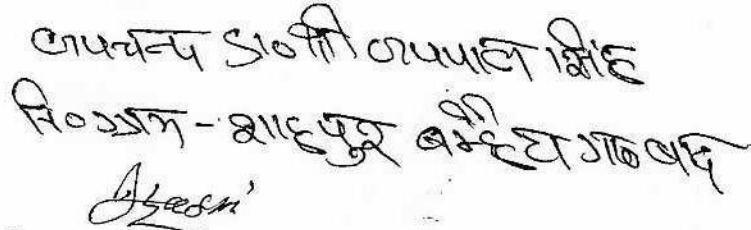 जयचन्द S/० श्री जयपाल सिंह
नि० ग्राम - शाहपुर बम्हैटा गा०बाद